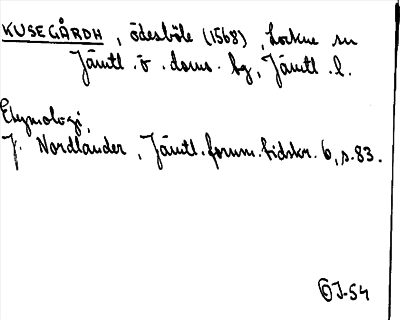 KUSEGÅRDH, ödesböle (1568), Lockne sn
Jämtl. ö. doms. bg, Jämtl. l.
Etymologi,
J. Nordlander, Jämtl. fornm. tidskr. 6, s. 83.
ÖJ-54